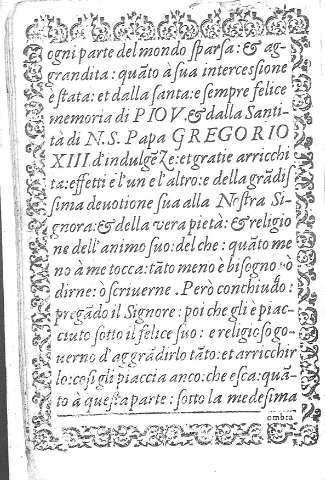 ogni parte del mondo sparsa: & ag-
grandita: quāto à sua intercessione
e stata: et dalla santa: e sempre felice
memoria di PIO V. & dalla Santi-
tà di N.S. Papa GREGORIO
XIII. d'indulgēze: et gratie arricchi
ta: effetti e l'un e l'altro: e della grādis
sima deuotione sua alla Nostra Si-
gnora: & della vera pietà: & religio
ne dell'animo suo: del che: quāto me
no à me tocca: tāto meno è bisogno ò
dirne: ò scriuerne. Però conchiudo:
pregādo il Signore: poi che gli è piac-
ciuto sotto il felice suo: e religioso go-
uerno d'aggrādirlo tāto: et arricchir
lo: cosi gli piaccia anco: che esca: quā-
to à questa parte: sotto la medesima
ombra